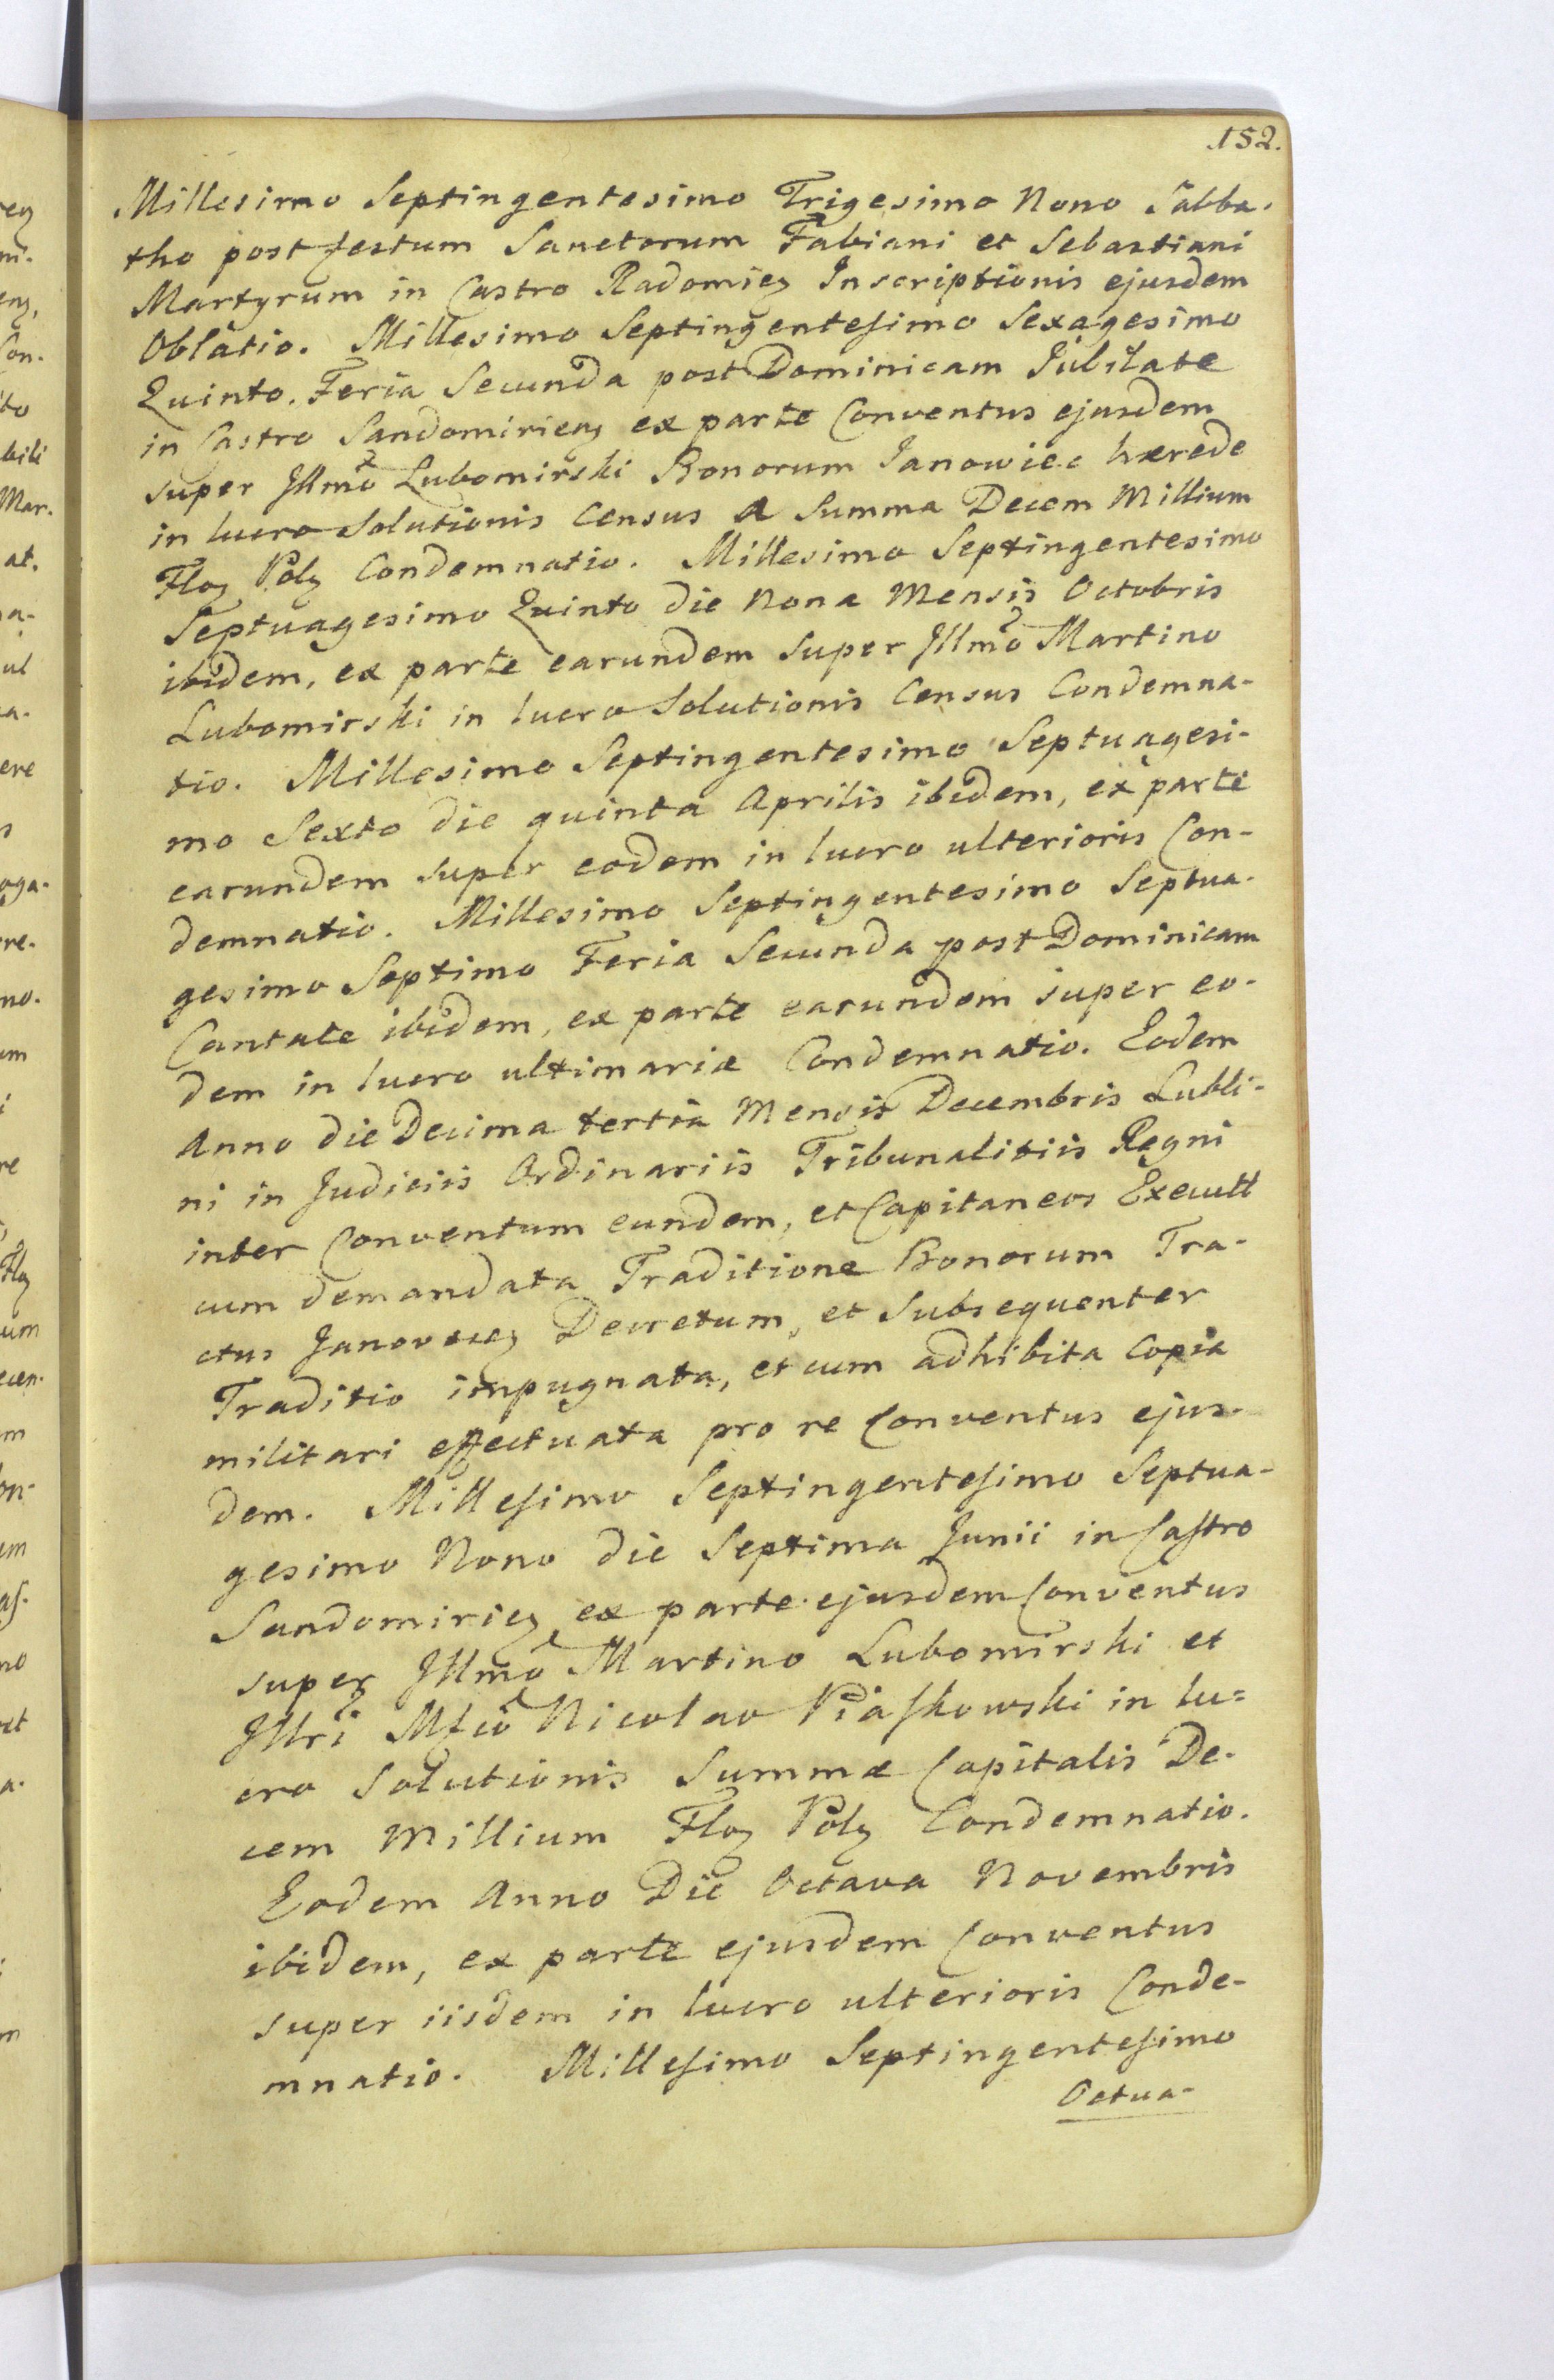 152.
Millesimo Septingentesimo Trigesimo Nono Sabba-
tho post festum Sanctorum Fabiani et Sebastiani
Martyrum in Castro Radomien Inscriptionis ejusdem
Oblatio. Millesimo Septingentesimo Sexagesimo
Quinto. Feria Secunda post Dominicam Jubilate
in Castro Sandomirien ex parte Conventus ejusdem
super Illmo Lubomirski Bonorum Janowiec hærede
in lucro Solutionis Census a Summa Decem Millium
Flon Poln Condemnatio. Millesimo Septingentesimo
Septuagesimo Quinto die Nona Mensis Octobris
ibidem, ex parte earundem super Illmo Martino
Lubomirski in lucro Solutionis Census Condemna-
tio. Millesimo Septingentesimo Septuagesi-
mo Sexto die quinta Aprilis ibidem, ex parte
earundem super eodem in lucro ulterioris Con-
demnatio. Millesimo Septingentesimo Septua-
gesimo Septimo Feria Secunda post Dominicam
Cantate ibidem, ex parte earundem super eo-
dem in lucro ultimariæ Condemnatio. Eodem
Anno die Decima tertia Mensis Decembris Lubli-
ni in Judiciis Ordinariis Tribunalitiis Regni
inter Conventum eundem, et Capitaneos Executt
cum demandata Traditione Bonorum Tra-
ctus Decretum, et Subsequenter
Traditio impugnata, et cum adhibita Copia
militari effectuata pro re Conventus ejus-
dem. Millesimo Septingentesimo Septua-
gesimo Nono die Septima Junii in Castro
Sandomirien ex parte ejusdem Conventus
super Illmo Martino Lubomirski et
Illri Mfco Nicolao Piaskowski in lu=
cro Solutionis Summæ Capitalis De-
cem Millium Flon Poln Condemnatio.
Eodem Anno Die Octava Novembris
ibidem, ex parte ejusdem Conventus
super iisdem in lucro ulterioris Conde-
mnatio. Millesimo Septingentesimo
Octua-